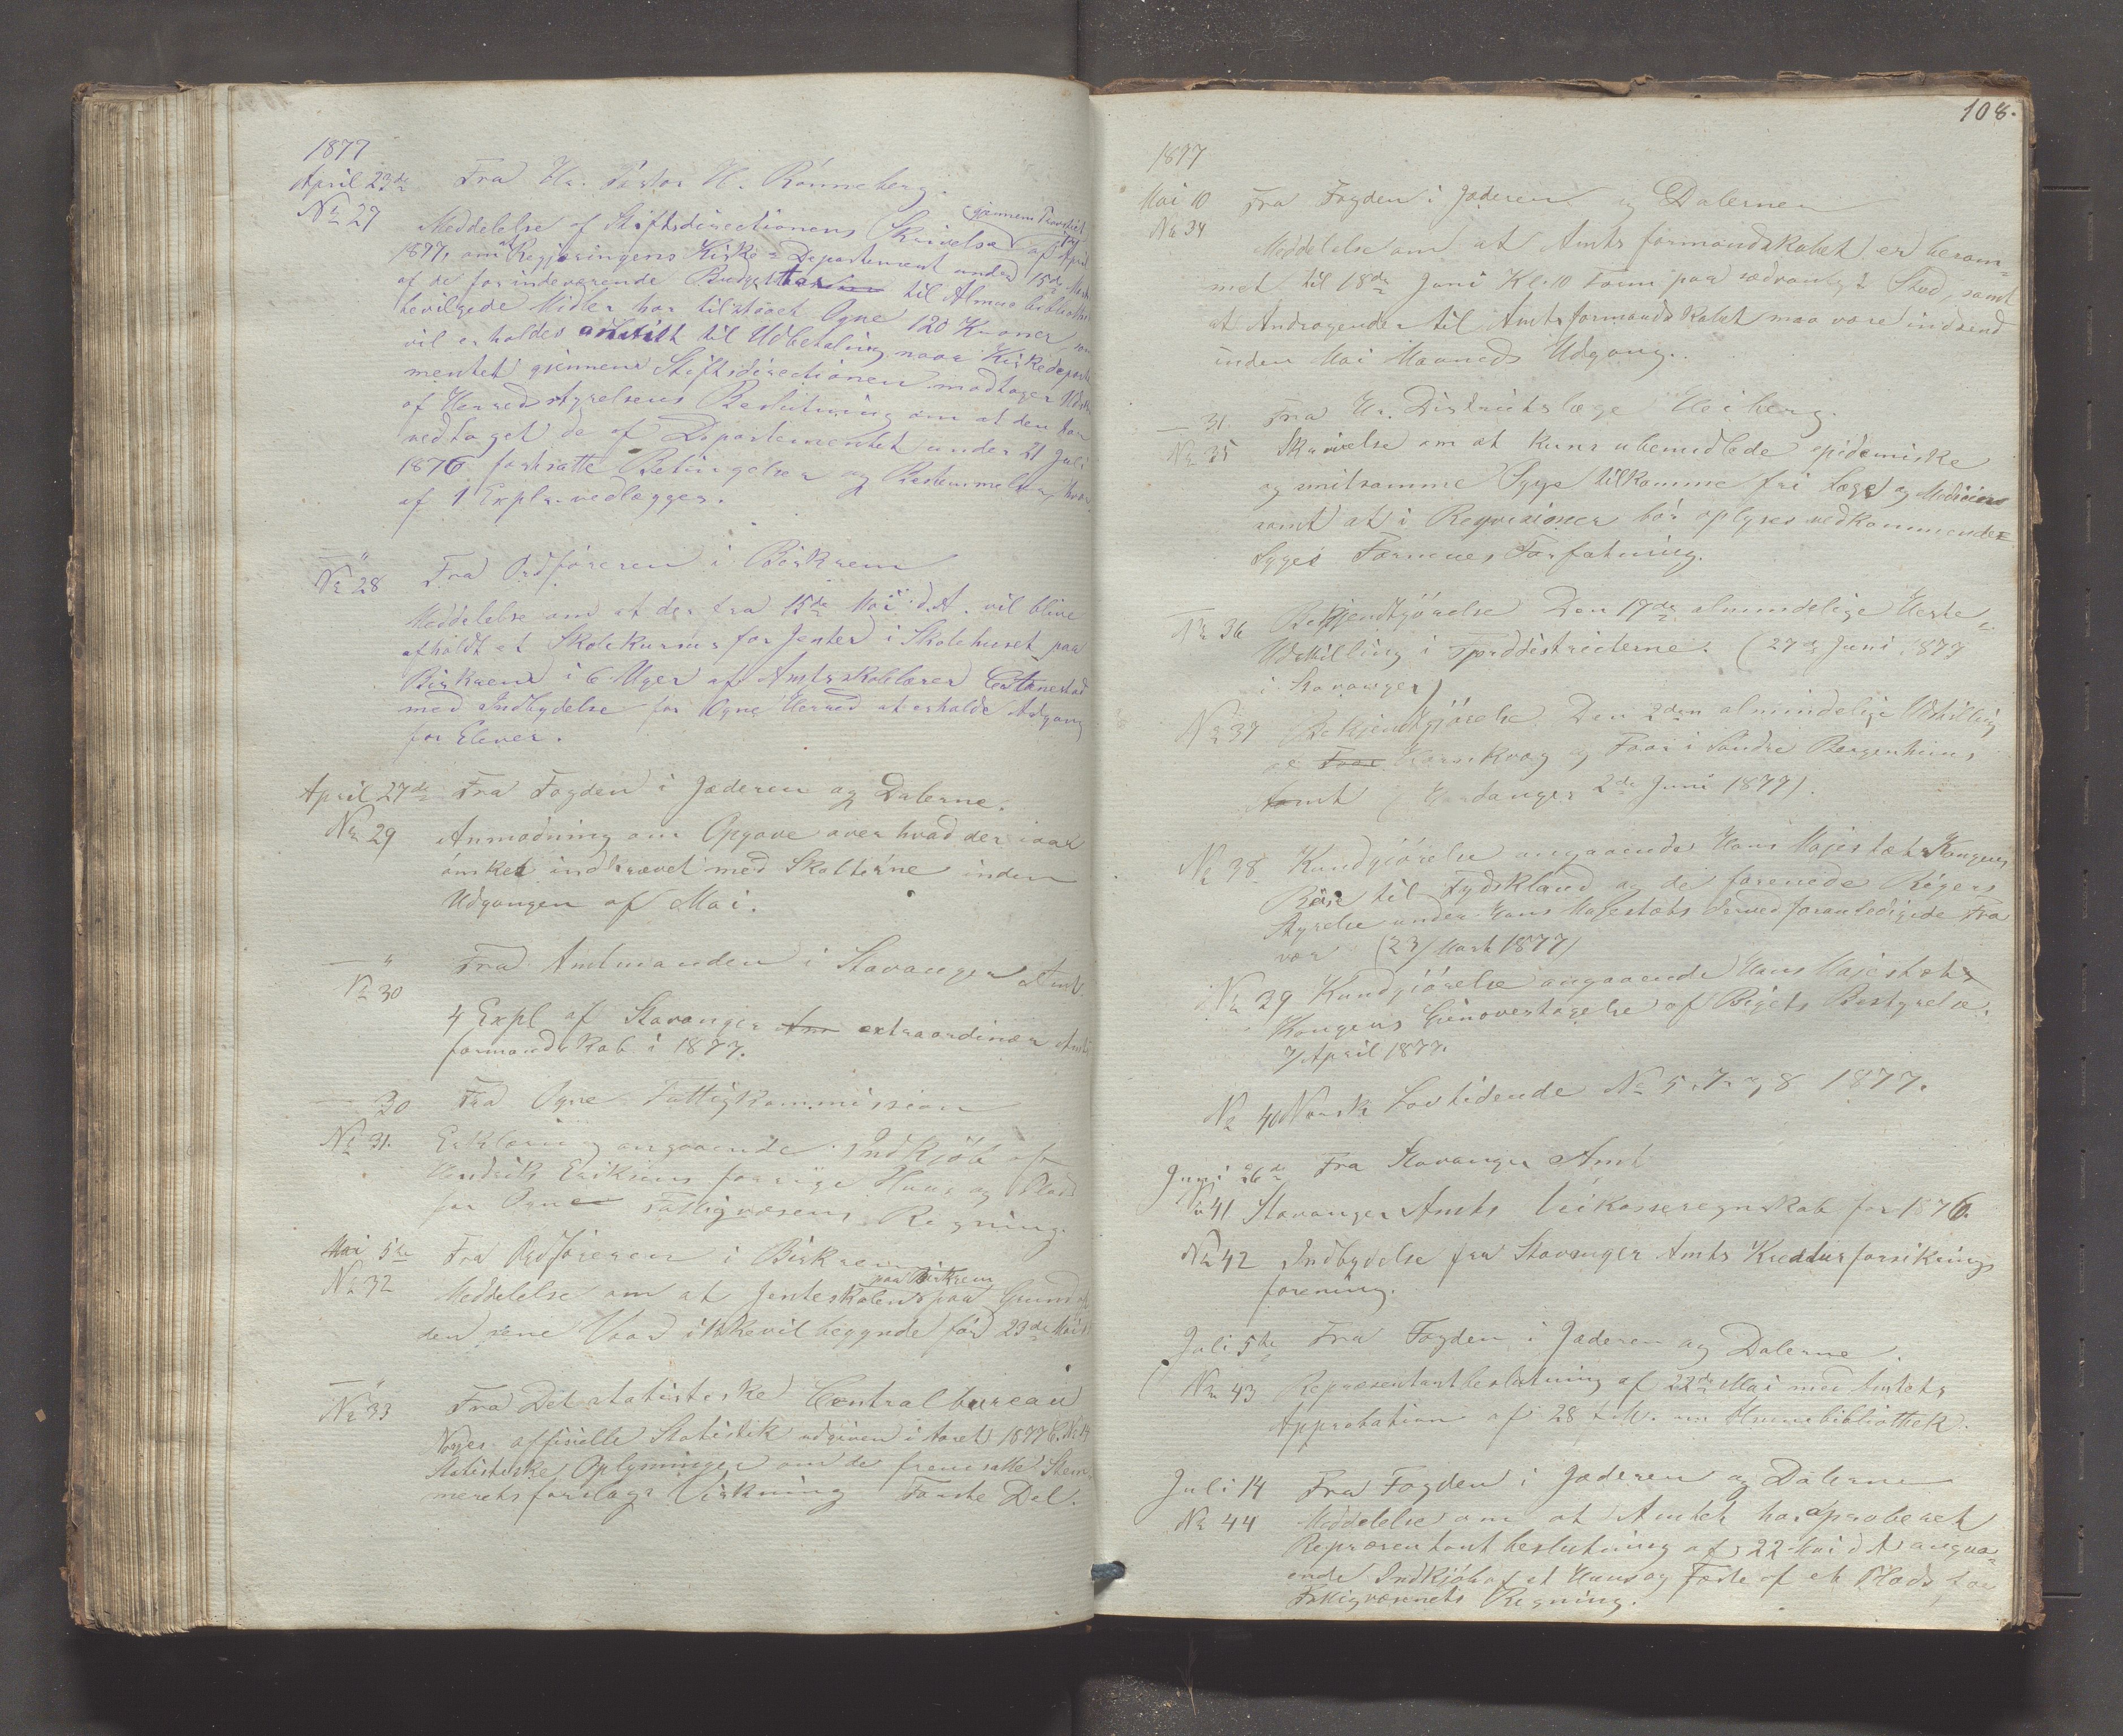 1877
April 23de Fra Hr. Pastor H. Rönneberg.
No 27 gjennem Provstiet
Meddelelse af Stiftsdirectionens Skrivelse af April
1877, om at Regjeringens Kirke-Departement under 15de Marts
af de for indeværende Budget til Almue bibliothek
bevilgede Midler har tilstaaet Ogne 120 Kroner, som
vil erholdes anvist til Udbetaling naar Kirkedeparte
mentet gjennem Stiftsdirectionen modtager Udskr
af Herredsstyrelsens Beslutning om at den har
vedtaget de af Departementet under 21 Juli
1876 fastsatte Betingelser og Bestemmelser, hvor
af 1 Explr. vedlægges.
— " Fra Ordföreren i Birkrem
No 28
Meddelelse om at der fra 15de Mai d.A. vil blive
afholdt et Skolekursus for Jenter i Skolehuset paa
Birkrem i 6 Uger af Amtsskolelærer
med Indbydelse for Ogne Herred at erholde Adgang
for Elever.
April 27de Fra Fogden i Jæderen og Dalerne.
No 29 Anmodning om Opgave over hvad der iaar
önskes indkrævet med Skatterne inden
Udgangen af Mai.
— " Fra Amtmanden i Stavanger Amt
No 30
4 Expl af Stavanger Am extraordinær Amts
formandskab i 1877.
— 30 Fra Ogne Fattigkommission
No 31. Erklæring angaaende Indkjöb af
Hendrik Eriksens forrige Huus og Plads
for Ogne Fattigvæsens Regning.
Mai 5te Fra Ordföreren i Birkrem
No 32 paa Birkrem
Meddelelse om at Jenteskolen paa Grund af
den sene Vaar ikke vil begynde för 23de Mai
— "
No 33 Fra Det statistiske Centralbureau
Norges officielle Statistik udgiven i Aaret 1877
Statistiske Oplysninger om de fremsatte Stem-
meretsforslags Virkning Förste Del.
108.
1877
Mai 10 Fra Fogden i Jæderen og Dalerne
No 34
Meddelelse om at Amts formandskabet er beram-
met til 18de Juni Kl. 10 Form paa sædvanlig Sted, samt
at Andragender til Amtsformandskabet maa være indsend
inden Mai Maaneds Udgang.
— 31. Fra Hr. Districtslæge Heiberg.
No 35 Skrivelse om at kuns ubemidlede epidemiske
og smitsomme Syge tilkomme fri Læge og Medicin
samt at i Reqvisioner bör oplyses vedkommende
Syges Formues Forfatning.
No 36 Bekjendtgjörelse Den 17de almindelige Heste
Udstilling i Fjorddistricterne. (27de Juni 1877
i Stavanger)
No 37 Bekjendtgjörelse Den 2den almindelige Udstilling
af Faar Hornkvæg og Faar i Söndre Bergenhuus
Aamt (Hardanger 2de Juni 1877).
No 38 Kundgjörelse angaaende Hans Majestæt Kongens
Reise til Tydskland og de forenede Rigers
Styrelse under Hans Majestæts derved foranledigede Fra
vær (23/ Marts 1877)
No 39 Kundgjörelse angaaende Hans Majestæt
Kongens Gjenovertagelse af Rigets Bestyrelse.
7/ April 1877.
No 40 Norsk Lovtidende No 5, 7 og 8 1877.
Juni 26de Fra Stavanger Amt
No 41 Stavanger Amts Veikasseregnskab for 1876.
No 42 Indbydelse fra Stavanger Amts Kreaturforsikrings
forening.
Juli 5te Fra Fogden i Jæderen og Dalerne
No 43 Repræsentantbeslutning af 22de Mai med Amtets
Approbation af 28 f.M. om Almuebibliothek.
Juli 14 Fra Fogden i Jæderen og Dalerne
No 44 Meddelelse om at Amtet har aproberet
Repræsentant beslutning af 22 Mai d A angaa-
ende Indkjöb af et Huus og Fæste af et Plads for
Fattigvæsenets Regning.